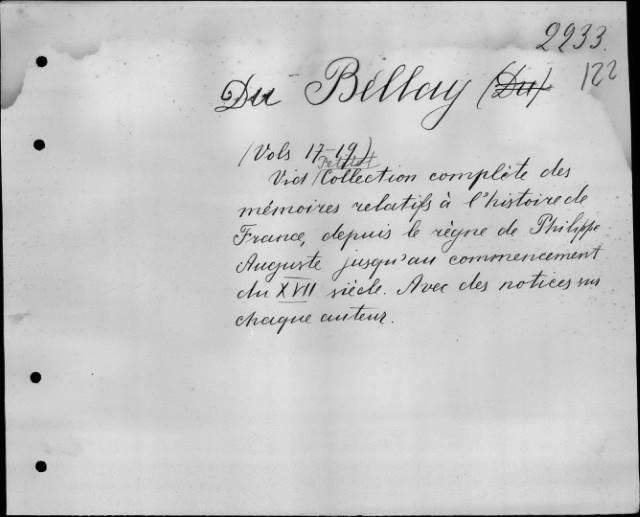 2933
122
Du Bellay (Du)
(Vols 17-19)
Petitot
Vid (Collection complète des
mémoires relatifs à l'histoire de
France, depuis le règne de Philippe
Auguste jusqu'au commencement
du XVII siècle. Avec des notices sur
chaque auteur.